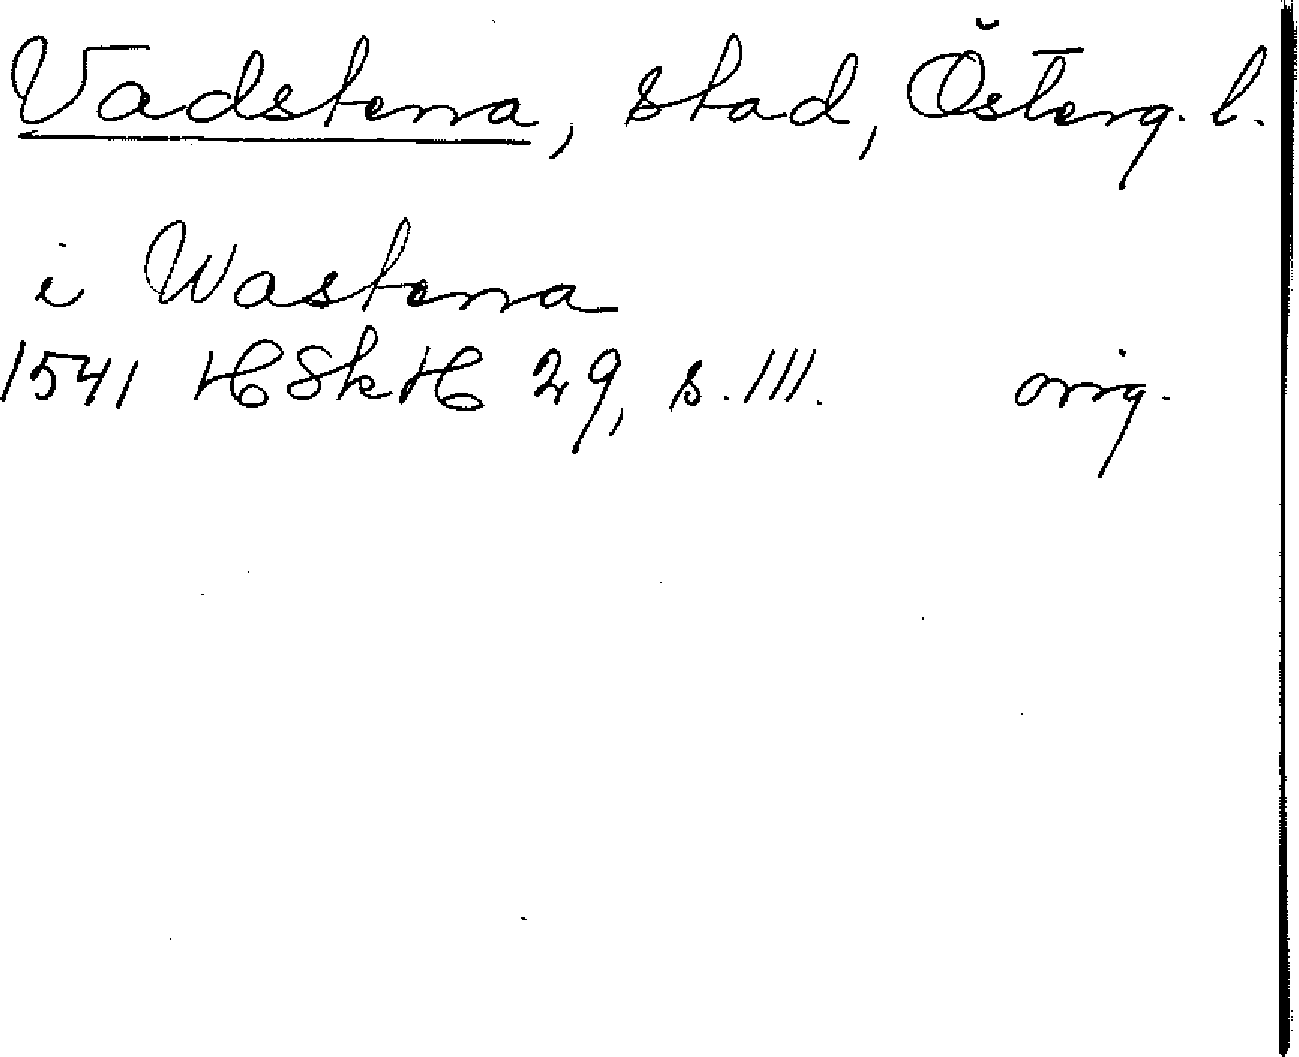 Vadstena, stad, Österg. l.
i Wastena
1541 HSkH 29, s. 111. orig.